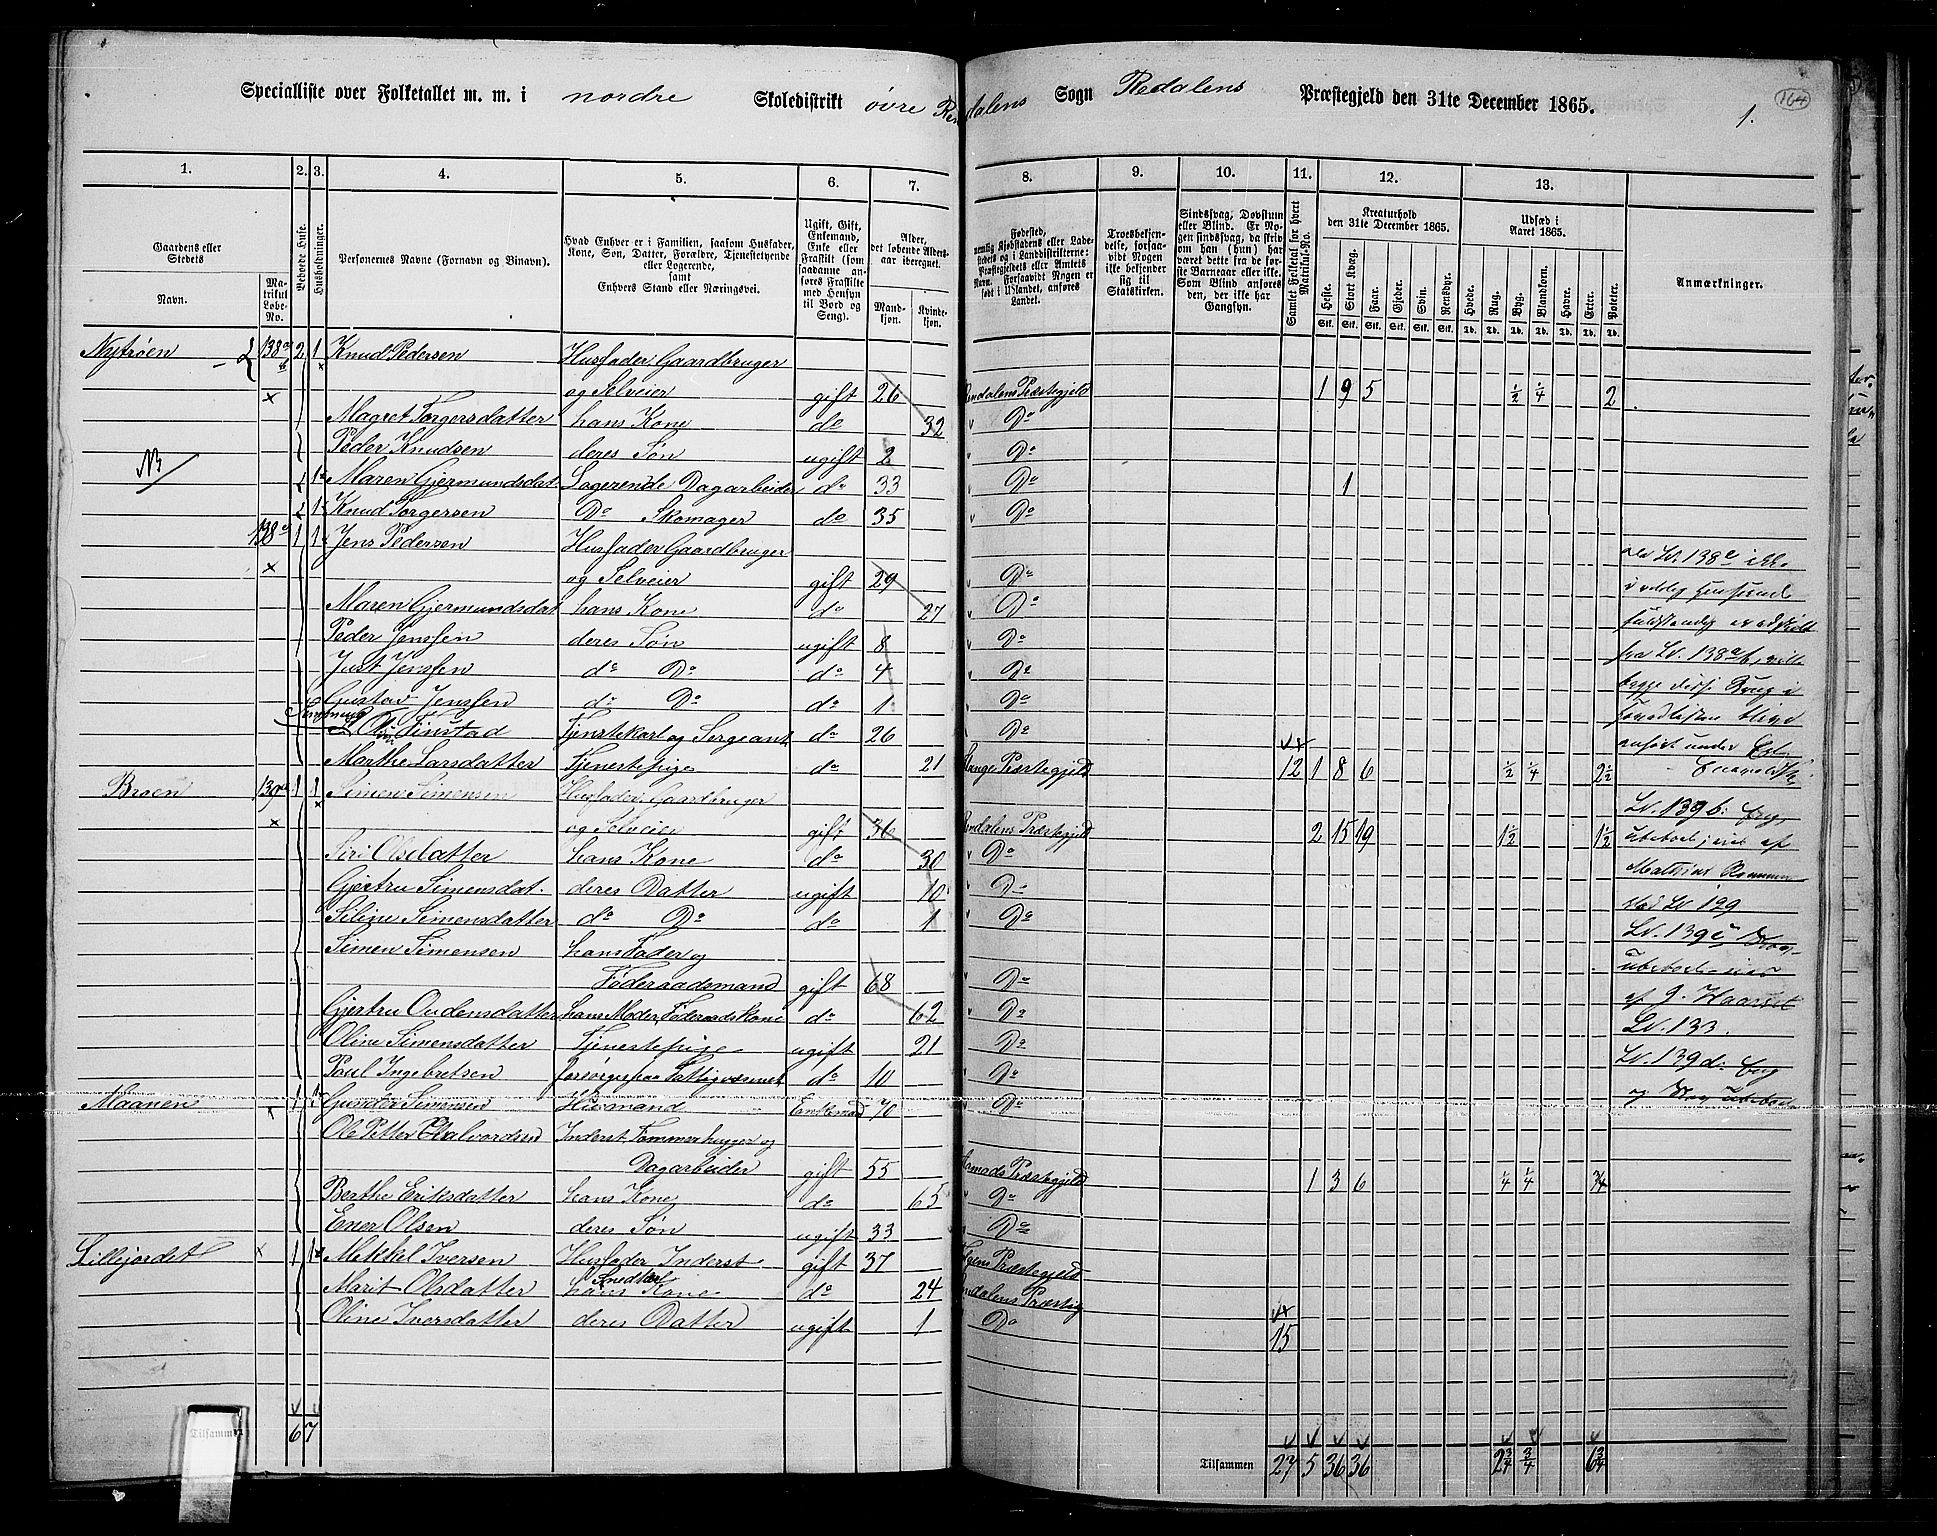 Specialliste over Folketallet m. m. i nordre Skoledistrikt øvre Rendalens Sogn Redalens Præstegjeld den 31te December 1865.
164
1.
1. 2. 3. 4. 5. 6. 7. 8. 9. 10. 11. 12. 13.
Gaardens eller Stedets
Navn.
Matrikul Løbe-No.
Beboede Huse.
Husholdninger.
Personernes Navne (Fornavn og Binavn).
Hvad Enhver er i Familien, saasom Husfader, Kone, Søn, Datter, Forældre, Tjenestetyende eller Logerende, samt Enhvers Stand eller Næringsvei.
Ugift, Gift, Enkemand, Enke eller Fraskilt (som saadanne anføres Fraskilte med Hensyn til Bord og Seng).
Alder, det løbende Aldersaar iberegnet.
Mandkjøn. Kvindekjøn.
Fødested, nemlig Kjøbstadens eller Ladestedets og i Landdistrikterne: Præstegjeldets eller Amtets Navn. Forsaavidt Nogen er født i Udlandet, anføres Landet.
Troesbekjendelse, forsaavidt Nogen ikke bekjender sig til Statskirken.
Sindssvag, Døvstum eller Blind. Er Nogen sindssvag, da skrives om han (hun) har været dette fra de første Barneaar eller ikke. Som Blind anføres den, der ikke har Gangsyn.
Samlet Folketal for hvert Matrikuls-No.
Kreaturhold den 31te December 1865.
Heste. Stort Kvæg. Faar. Gjeder. Svin. Rensdyr.
Udsæd i Aaret 1865.
Hvede. Rug. Byg. Blandkorn. Havre. Erter. Poteter.
Anmærkninger.
Nytrøen 138 2 1 Knud Pedersen Husfader Gaardbruger
og Selveier gift 26 Rendalens Præstegjeld 1 9 5 ½ ¼ 2
Magret Torgersdatter hans Kone do 32 Do
Peder Knudsen deres Søn ugift 2 Do
Maren Gjermundsdat Logerende Dagarbeider do 33 Do 1
Knud Torgersen Do Skomager do 35 Do
138 1 1 Jens Pedersen Husfader Gaardbruger
og Selveier gift 29 Do
Maren Gjermundsdat hans Kone do 27 Do
Peder Jenssen deres Søn ugift 8 Do
Just Jenssen do Do do 4 Do
Gustav Jenssen do Do do 1 Do
Ole Finstad Tjenstekarl og Sergeant do 26 Do
Marthe Larsdatter Tjenestepige do 21 Stange Præstegjeld 12 1 8 6 ½ ¼ 2½
Broen 139a 1 1 Simen Simensen Husfader Gaardbruger
og Selveier gift 36 Rendalens Præstegjeld 2 15 19 1½ 1½
Siri Olsdatter hans Kone do 30 Do
Gjertru Simensdat. deres Datter ugift 10 Do
Siline Simensdatter do Do do 1 Do
Simen Simensen hans Fader og
Føderaadsmand gift 68 Do
Gjertru Oudensdatter hans Moder, Føderaadskone do 62 Do
Oline Simensdatter Tjenestepige ugift 21 Do
Poul Ingebretsen forsørges paa Fattigvæsenet do 10 Do
Maanen 1 1 Gunder Simensen Husmand Enkemad 70 Do
Ole Petter Halvordsen Inderst, Tømmerhugger og
Dagarbeider gift 55 Præstegjeld 1 3 6 ¼ ¼ ¾
Berthe Eriksdatter hans Kone do 65 Do
Ener Olsen deres Søn ugift 33 Do
Lillejordet 1 1 Mekkel Iversen Husfader Inderst gift 37 Præstegjeld
Snedker
Marit Olsdatter hans Kone do 24 Rendalens Præstig
Oline Iversdatter deres Datter ugift 1 Do
15
Lv. 139b: Eng,
ubeboet
Mathias
ved Lv 129
Lv. 139c
ubeboet
af J. Haarset
Lv. 133.
Lv. 139d. Eng
Tilsammen 6 7
Tilsammen 27 5 36 36 2¾ ¾ 6¾